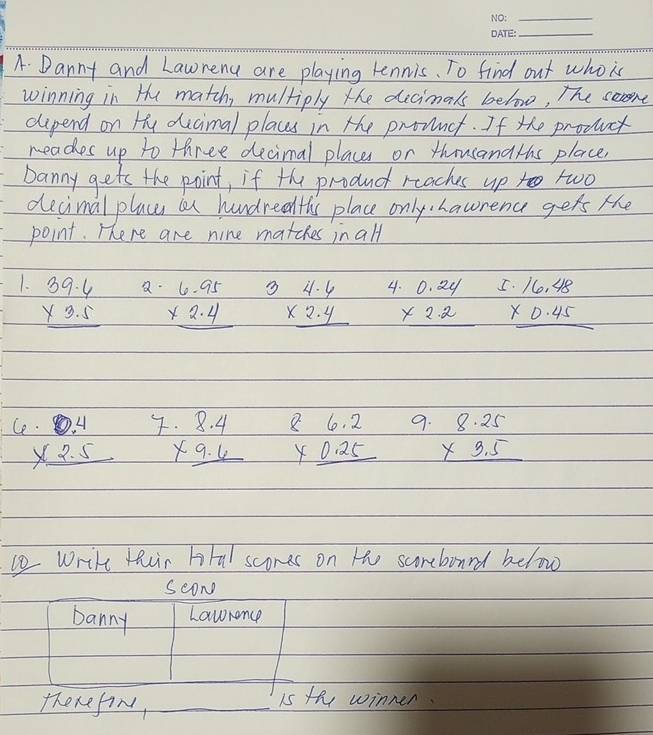 NO:
DATE:
A. Danny and Lawrence are playing tennis. To find out who is
winning in the match, multiply the decimals below, The score
depend on the decimal places in the product. If the product
reaches up to three decimal places or thousandths place,
Danny gets the point, if the product reaches up to two
decimal places or hundredths place only. Lawrence gets the
point. There are nine matches in all
1. 39.6 2. 6.95 3 4.6 4. 0.24 5. 16.48
x 3.5 x 2.4 x 2.4 x 2.2 x 0.45
6. 0.4 7. 8.4 8 6.2 9. 8.25
x 2.5 x 9.6 x 0.25 x 3.5
10 Write their total scores on the scoreboard below
Score
Danny Lawrence
Therefore, ________ is the winner.